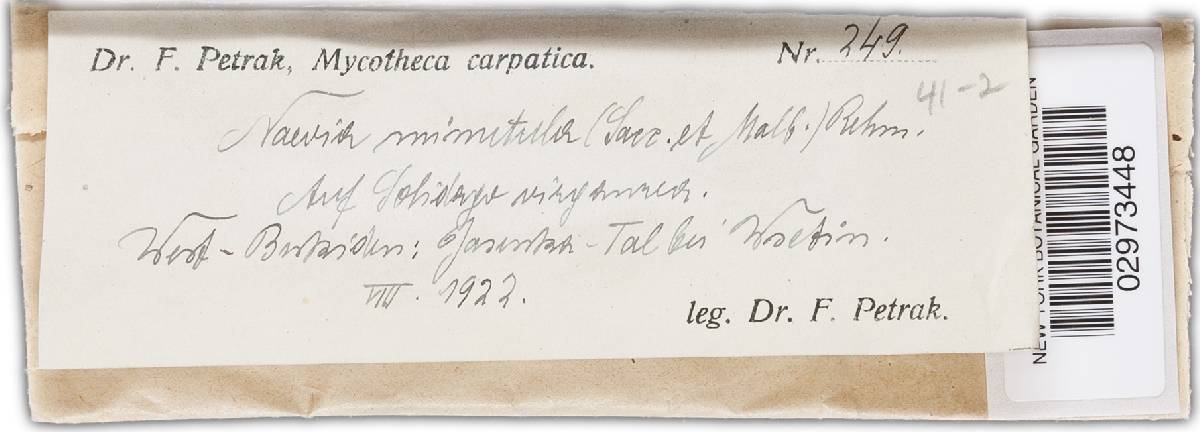 Dr. F. Petrak, Mycotheca carpatica. Nr. 249.
41-2
Naevia minutula (Sacc. et Malb.) Rehm.
Auf Solidago virgaurea.
West-Beskiden: Jasenka-Tal bei Wsetin.
VIII. 1922.
leg. Dr. F. Petrak.
NEW YORK BOTANICAL GARDEN
02973448